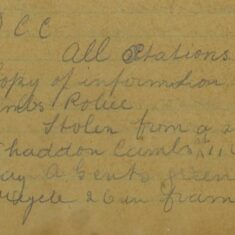 C C
All Stations
Copy of information
Police
Stolen from a
haddon Cambs 11
a Gents green
cycle 26 in fram